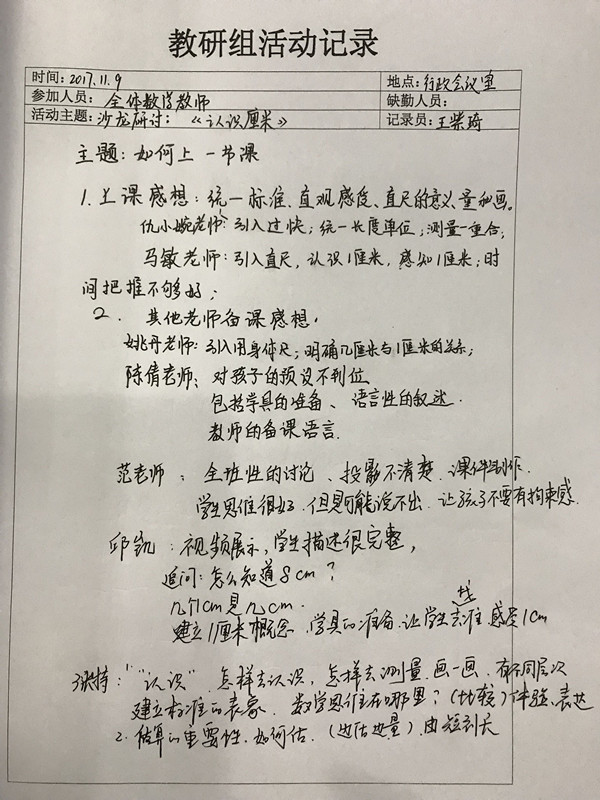 教研组活动记录
时间: 2017.11.9 地点: 行政会议室
参加人员: 全体数学教师 缺勤人员:
活动主题: 沙龙研讨: 《认识厘米》 记录员: 王紫琦
主题: 如何上一节课
1. 上课感想: 统一标准、直观感度、直尺的意义、量和画。
仇小婉老师: 引入过快; 统一长度单位; 测量一重合;
马敏老师: 引入直尺, 认识1厘米, 感知1厘米; 时
间把握不够好;
2. 其他老师备课感想.
姚丹老师: 引入用身体尺; 明确几厘米与1厘米的关系;
陈倩老师: 对孩子的预设不到位
包括学具的准备、语言性的叙述.
教师的备课语言.
范老师: 全班性的讨论、投影不清楚. 课件制作.
学生思维很好. 但是可能说不出. 让孩子不要有拘束感.
邱凯: 视频展示, 学生描述很完整,
追问: 怎么知道8cm?
几个1cm是几cm.
建立1厘米概念. 学具的准备. 让学生去找准 感受1cm
: "认识" 怎样去认识, 怎样去测量. 画一画. 有不同层次
建立标准的表象. 数学思维在哪里? (比较) 体验、表达
2. 估算的重要性. 如何估. (边估边量). 由短到长